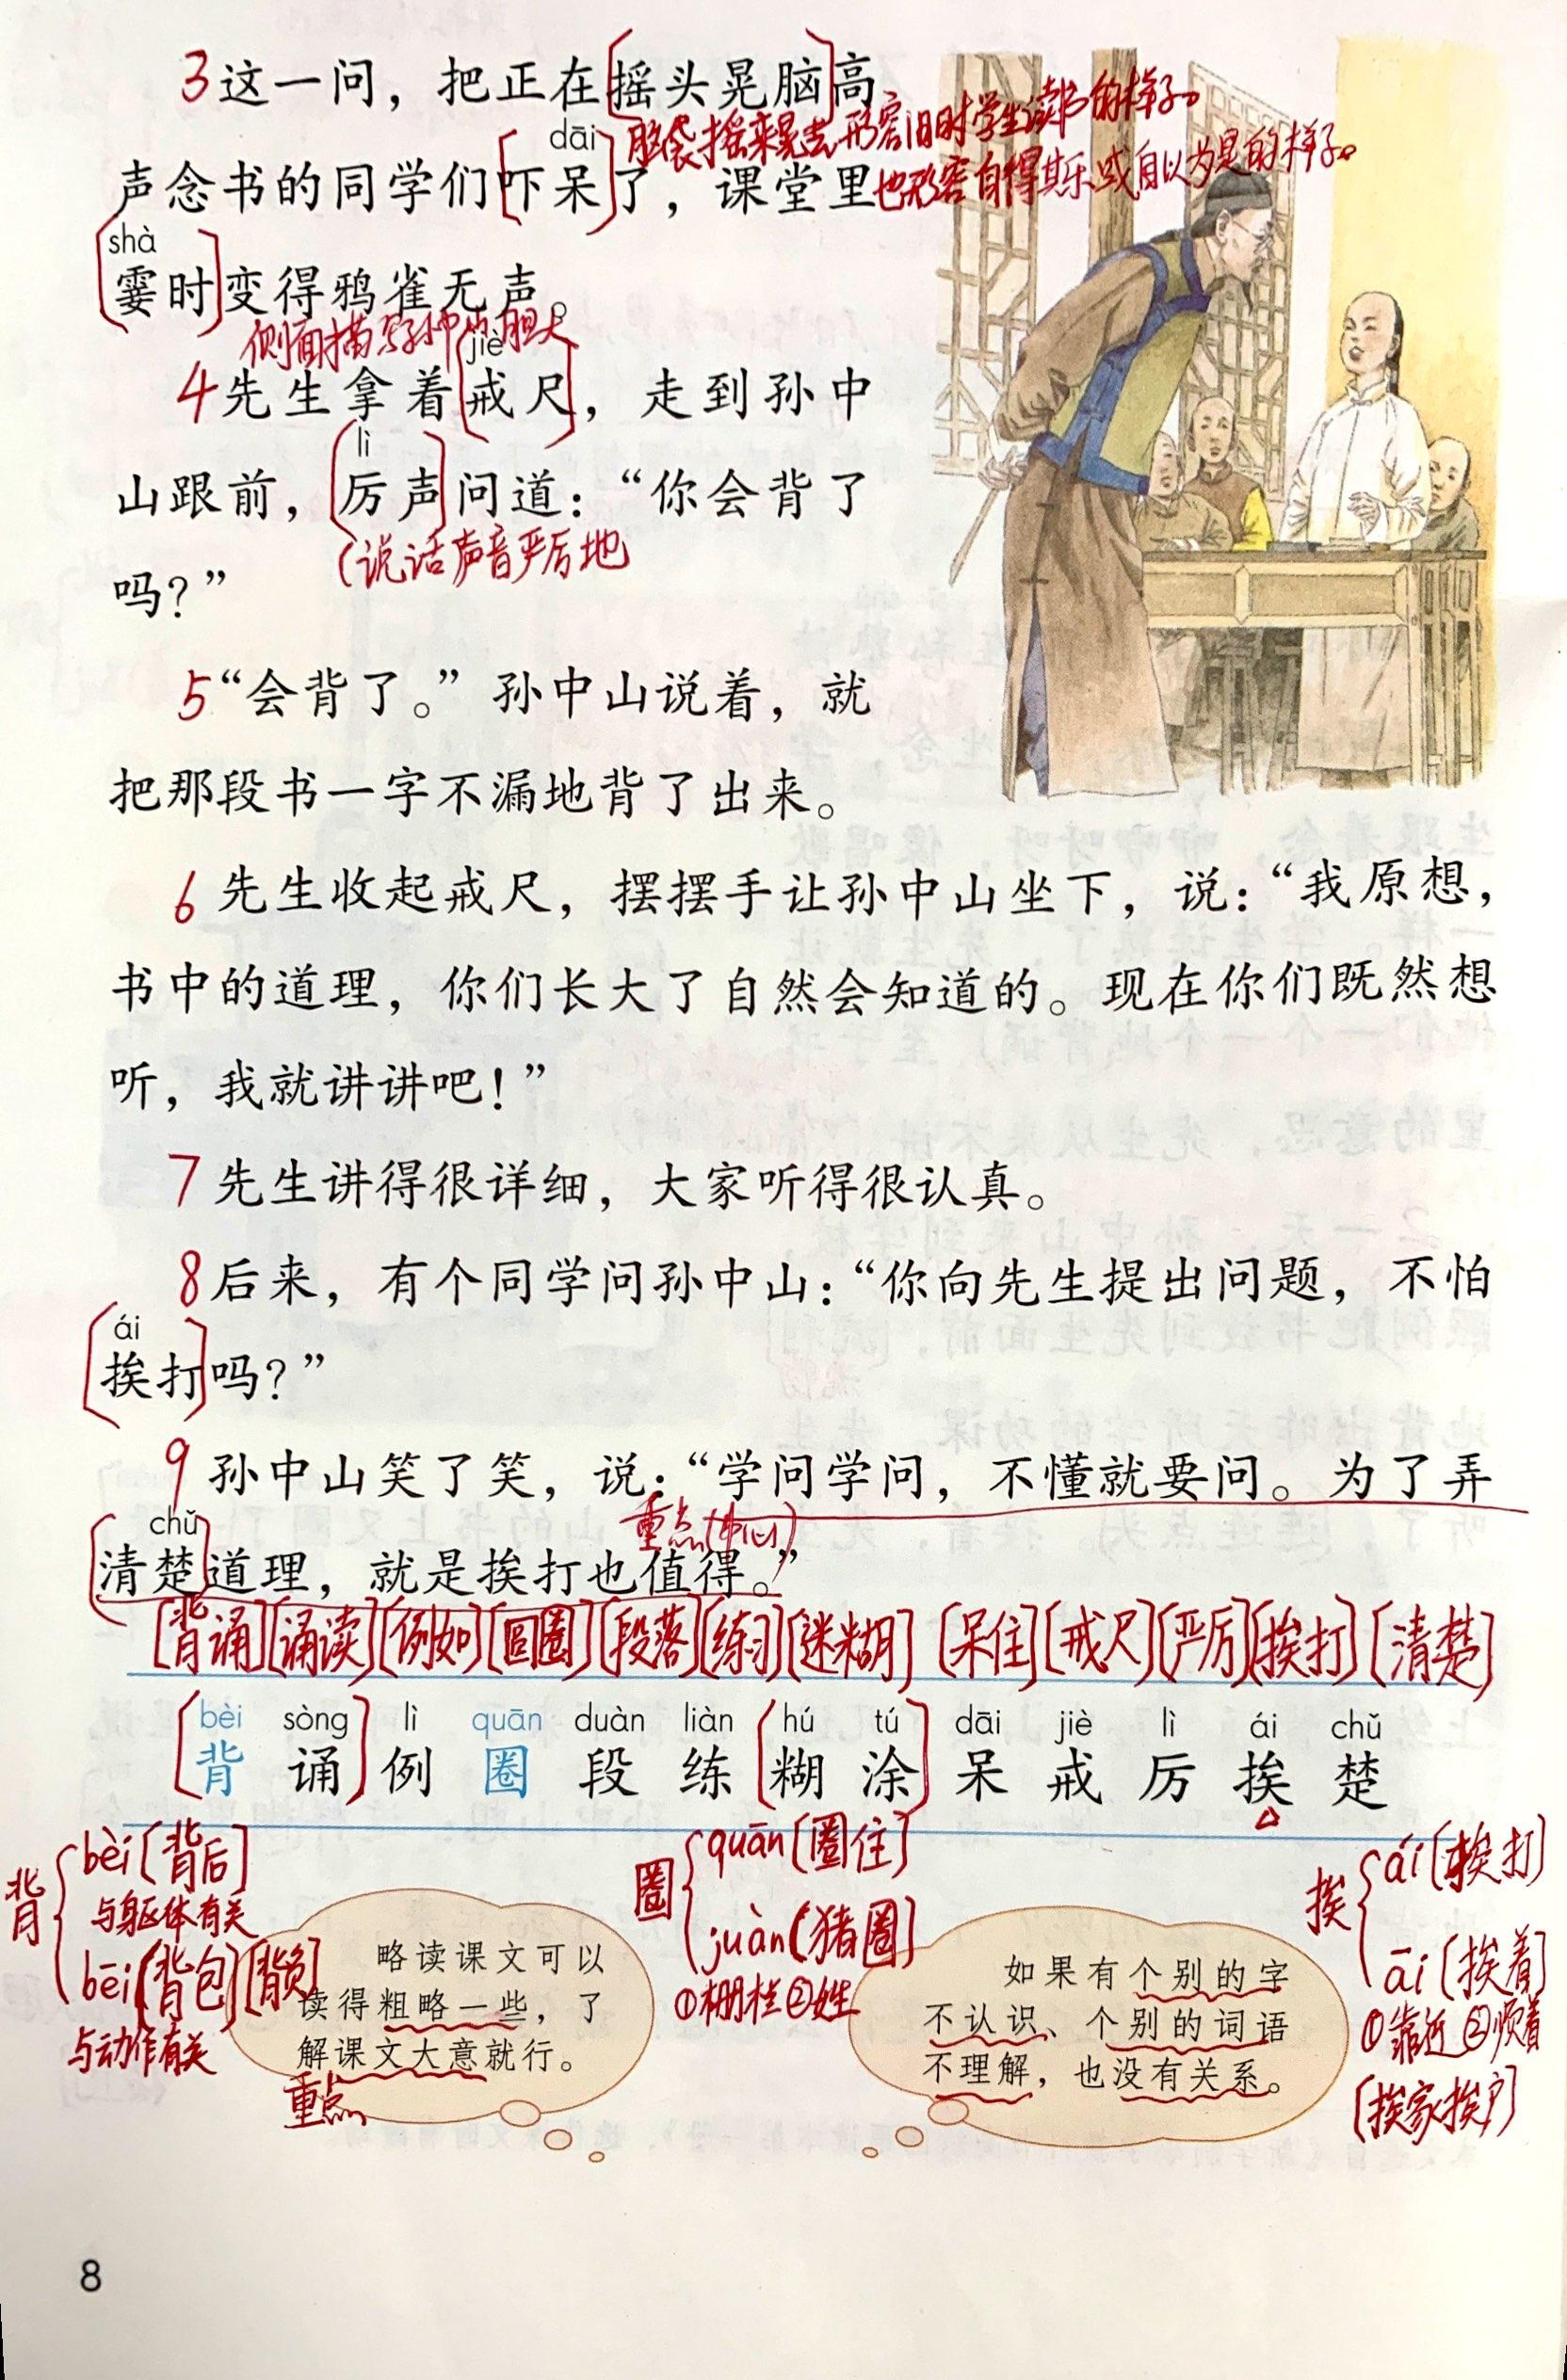 3这一问，把正在[摇头晃脑]高
脑袋摇来晃去,形容旧时学生读书的样子。
dāi
声念书的同学们[吓呆]了，课堂里
也形容自得其乐或自以为是的样子。
shà
[霎时]变得鸦雀无声。
侧面描写孙中山胆大
jiè
4先生拿着[戒尺]，走到孙中
lì
山跟前，[厉声]问道：“你会背了
(说话声音严厉地
吗？”
5“会背了。”孙中山说着，就
把那段书一字不漏地背了出来。
6先生收起戒尺，摆摆手让孙中山坐下，说：“我原想，
书中的道理，你们长大了自然会知道的。现在你们既然想
听，我就讲讲吧！”
7先生讲得很详细，大家听得很认真。
8后来，有个同学问孙中山：“你向先生提出问题，不怕
ái
[挨打]吗？”
9孙中山笑了笑，说：“学问学问，不懂就要问。为了弄
chǔ
重点(中心)
[清楚]道理，就是挨打也值得。”
[背诵][诵读][例如][圆圈][段落][练习][迷糊][呆住][戒尺][严厉][挨打][清楚]
[bèi sòng] lì quān duàn liàn [hú tú] dāi jiè lì ái chǔ
[背 诵] 例 圈 段 练 [糊 涂] 呆 戒 厉 挨 楚
背{bèi[背后]
与躯体有关
bēi[背包][背负]
与动作有关
圈{quān[圈住]
juàn[猪圈]
①栅栏②姓
挨{ái[挨打]
āi[挨着]
①靠近②顺着
[挨家挨户]
略读课文可以
读得粗略一些，了
解课文大意就行。
重点
如果有个别的字
不认识、个别的词语
不理解，也没有关系。
8